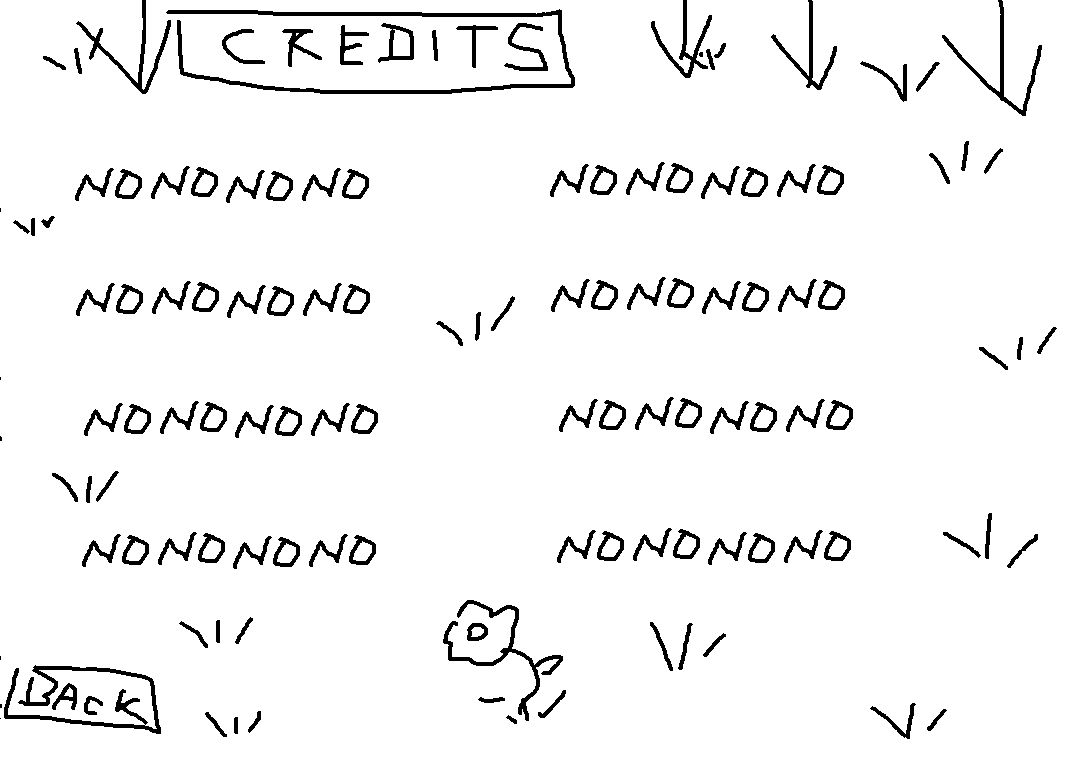 CREDITS
NONONONO NONONONO
NONONONO NONONONO
NONONONO NONONONO
NONONONO NONONONO
BACK